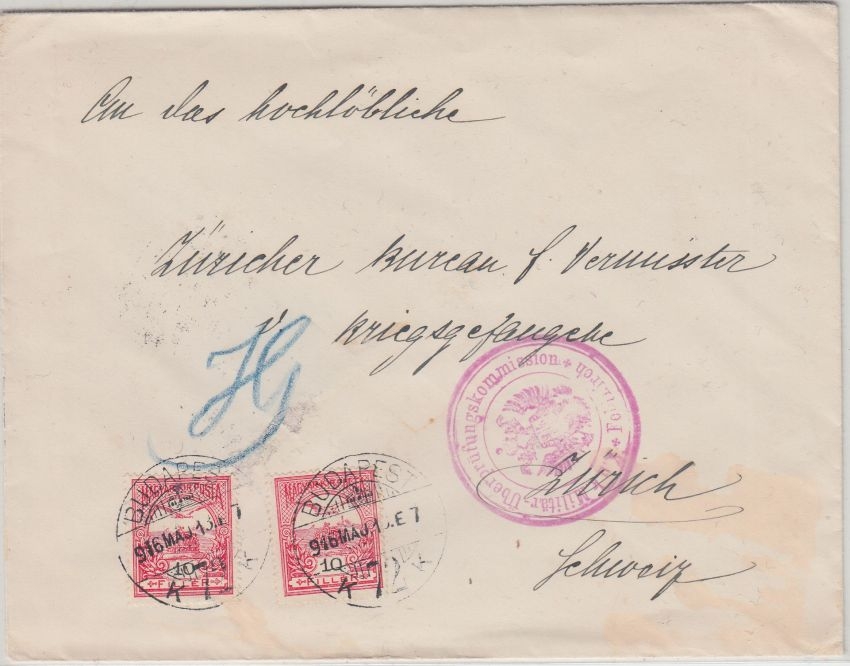 An das hochlöbliche
Züricher Bureau f. Vermisster
u Kriegsgefangene
Zürich
Schweiz
H
Militär-Überprüfungskommission + Feldkirch +
BUDAPEST
916 MAJ 13. E 7
MAGYAR KIR. POSTA
10
FILLÉR
BUDAPEST
916 MAJ 13. E 7
MAGYAR KIR. POSTA
10
FILLÉR